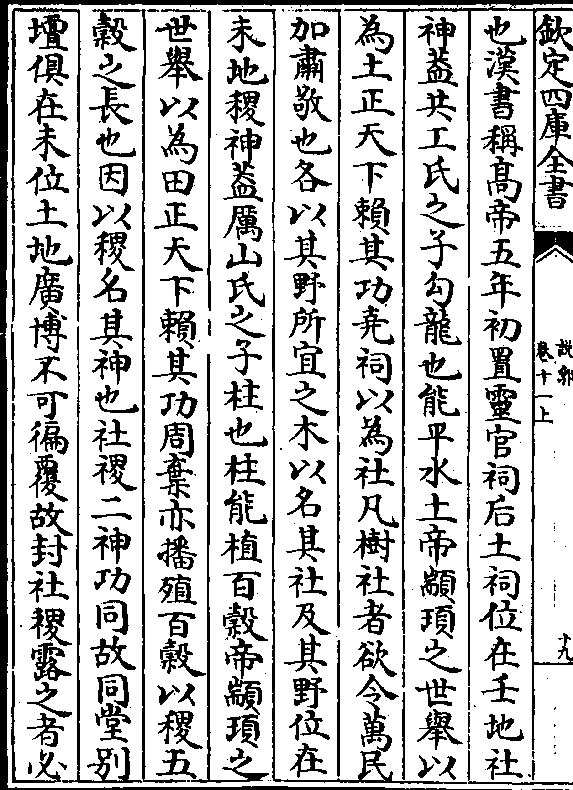 欽定四庫全書
說郛
卷十一上
十九
也漢書稱髙帝五年初置靈官祠后土祠位在壬地社
神葢共工氏之子勾龍也能平水土帝顓頊之世舉以
為土正天下賴其功堯祠以為社凡樹社者欲令萬民
加肅敬也各以其野所宜之木以名其社及其野位在
未地稷神葢厲山氏之子柱也柱能植百穀帝顓頊之
世舉以為田正天下賴其功周棄亦播殖百穀以稷五
穀之長也因以稷名其神也社稷二神功同故同堂别
壇俱在未位土地廣博不可徧覆故封社稷露之者必